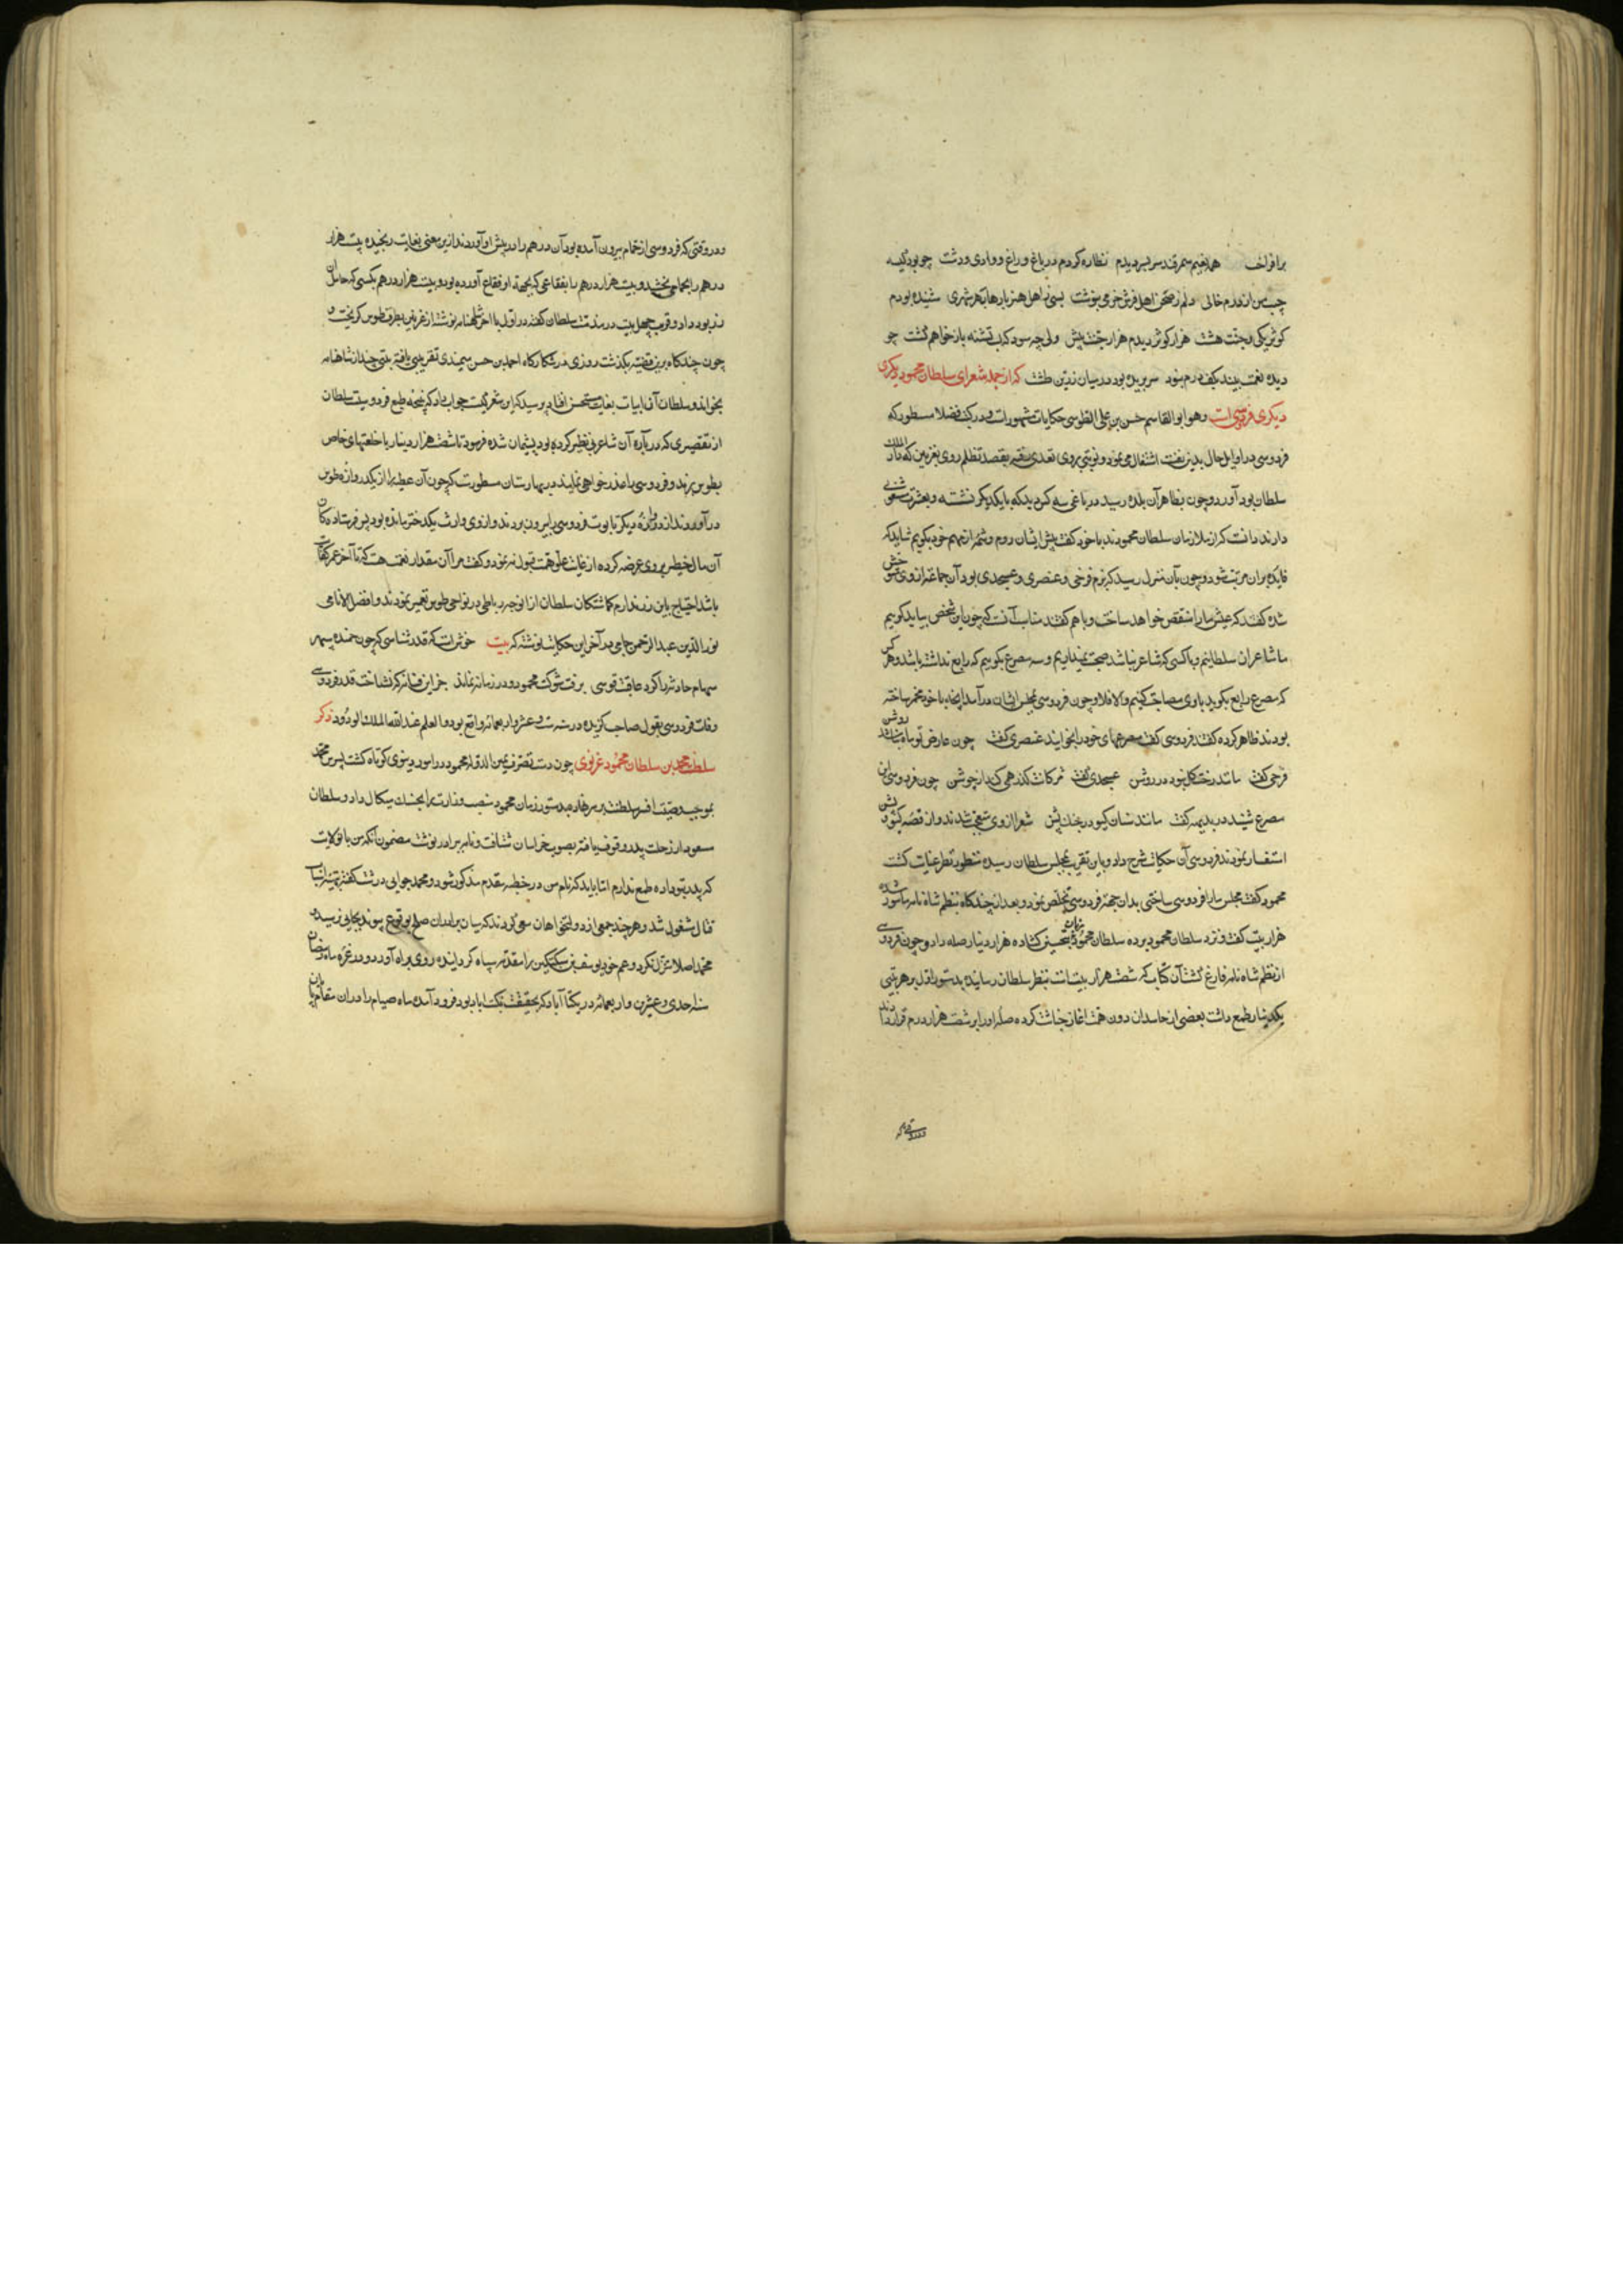 برافراخت همه نعیم سمرقند سربسر دیدم نظاره کردم در باغ و راغ و وادی و دشت چو بود کیسه
جیب من از درم خالی دلم ز صحن امل فرش خرمی بنوشت بسی ز اهل هنر بارها بهر شهری شنیده بودم
کوثر یکی و جنت هشت هزار کوثر دیدم هزار جنت پیش ولی چه سود که لب تشنه باز خواهم گشت چو
دیده نعمت بیند بکف درم نبود سر بریده بود در میان زرین طشت که از جمله شعرای سلطان محمود یکری
دیکری فردوسی است وهو ابو القاسم حسن بن علی الطوسی حکایات مشهور است و در کتب فضلا مسطور که
فردوسی در اوایل حال بدین نعت اشتغال می نمود و نوبتی بروی تعدی رفته بقصد تظلم روی بغزنین که دار الملک
سلطان بود آورد و چون بظاهر آن بلده رسید در باغی سه کس دید که با یکدیکر نشسته و بعشرت مشغولی
دارند دانست که از ملازمان سلطان محمودند با خود کفت پیش ایشان روم و شمه از مهم خود بکویم شاید که
فایده بران مرتب شود و چون بآن منزل رسید که بزم فرخی و عنصری و عسجدی بود آن جماعت از وی متوحش
شده کفتند که عیش ما را منغص خواهد ساخت و با هم کفتند مناسب آنست که چون این شخص بیاید کوییم
ما شاعران سلطانیم و با کسی که شاعر نباشد صحبت نمیداریم و سه مصرع بکوییم که رابع نداشته باشد و هر کس
که مصرع رابع بکوید با وی مصاحبت کنیم و الا فلا و چون فردوسی بمجلس ایشان درآمد آنچه با خود مخمر ساخته
بودند ظاهر کرده کفتند فردوسی کفت مصرعهای خود را بخوانید عنصری کفت چون عارض تو ماه نباشد روشن
فرخی کفت مانند رخت کل نبود در روشن عسجدی کفت مژکانت کذر همی کند از جوشن چون فردوسی این
مصرع شنید در بدیهه کفت مانند سنان کیو در جنک پشن شعرا از وی متعجب شدند و از قصه کیو و پشن
استفسار نمودند فردوسی آن حکایت شرح داد و باین تقریب بمجلس سلطان رسیده منظور نظر عنایت کشت
محمود کفت مجلس ما را فردوس ساختی بدان جهة فردوسی تخلص نمود و بعد از چندکاه بنظم شاه نامه مامور شده
هزار بیت کفت و نزد سلطان محمود برده سلطان محمود زبان بتحسین کشاده هزار دینار صله داد و چون فردوسی
از نظم شاه نامه فارغ کشت آن کتاب که شصت هزار بیت است بنظر سلطان رسانیده بدستور اول بر هر بیتی
یکدینار طمع داشت بعضی از حاسدان دون همت اغاز خباثت کرده صله او را بر شصت هزار درم قرار دادند
ودر وقتی که
ودر وقتی که فردوسی از حمام بیرون آمده بود آن درهم را در پیش او آوردند ازین معنی بغایت رنجیده بیست هزار
درهم را بحمامی بخشید و بیست هزار درهم را بفقاعی که بجهة او فقاع آورده بود و بیست هزار درهم بکسی که حامل آن
زر بود داد و قریب چهل بیت در مذمت سلطان کفته در اول یا آخر شاهنامه نوشته از غزنین بطرف طوس کریخت و
چون چندکاه برین قضیه بکذشت روزی در شکارکاه احمد بن حسن میمندی تقریبی یافته بیتی چند از شاهنامه
بخواند و سلطان آن ابیات بغایت مستحسن افتاد پرسید که این شعر کیست جواب داد که نتیجه طبع فردوسیست سلطان
از تقصیری که در باره آن شاعر بی نظیر کرده بود پشیمان شده فرمود تا شصت هزار دینار با خلعتهای خاص
بطوس برند و فردوسی را عذرخواهی نمایند در بهارستان مسطورست که چون آن عطیه را از یک دروازه طوس
درآوردند از دروازه دیکر تابوت فردوسی را بیرون بردند و از وی وارث یک دختر مانده بود پس فرستادکان
آن مال خطیر بر وی عرضه کرده از غایت علو همت قبول ننمود و کفت مرا آن مقدار نعمت هست که تا آخر عمر کفاف
باشد احتیاج باین زر ندارم کماشتکان سلطان از ان وجه رباطی در نواحی طوس تعمیر نمودند و افضل الانامی
نور الدین عبد الرحمن جامی در آخر این حکایت نوشته که بیت خوش است که قدرشناسی که چون خمیده سپهر
سهام حادثه را کرد عاقبت قوسی برفت شوکت محمود و در زمانه نماند جز این فسانه که نشناخت قدر فردوسی
وفات فردوسی بقول صاحب کزیده در سنه ست و عشر و اربعمائه واقع بود و العلم عند الله الملک الودود ذکر
سلطان محمد بن سلطان محمود غزنوی چون دست تصرف یمین الدوله محمود در امور دنیوی کوتاه کشت پسرش محمد
بموجب وصیت افسر سلطنت بر سر نهاد و بدستور زمان محمود منصب وزارت را بحسنک میکال داد و سلطان
مسعود از رحلت پدر وقوف یافته بصوب خراسان شتافت و نامه برادر نوشت مضمون آنکه من با ولایت
که پدر بتو داده طمع ندارم اما باید که نام من در خطبه مقدم مذکور شود و محمد جوابی درشت کفته بتهیه اسباب
قتال مشغول شد و هرچند جمعی از دولتخواهان سعی کردند که میان برادران صلح بوقوع پیوندد بجایی نرسید و
محمد اصلا تنزل نکرد و عم خود یوسف بن سبکتکین را مقدمه سپاه کردانیده روی براه آورد و در غره ماه رمضان
سنه احدی و عشرین و اربعمائه در تکیناآباد که بحقیقت نکبت اباد بود فرود آمده ماه صیام را در ان مقام بپایان